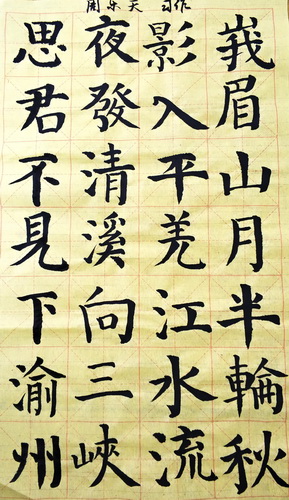 周乐天 习作
峩眉山月半輪秋
影入平羌江水流
夜發清溪向三峽
思君不見下渝州